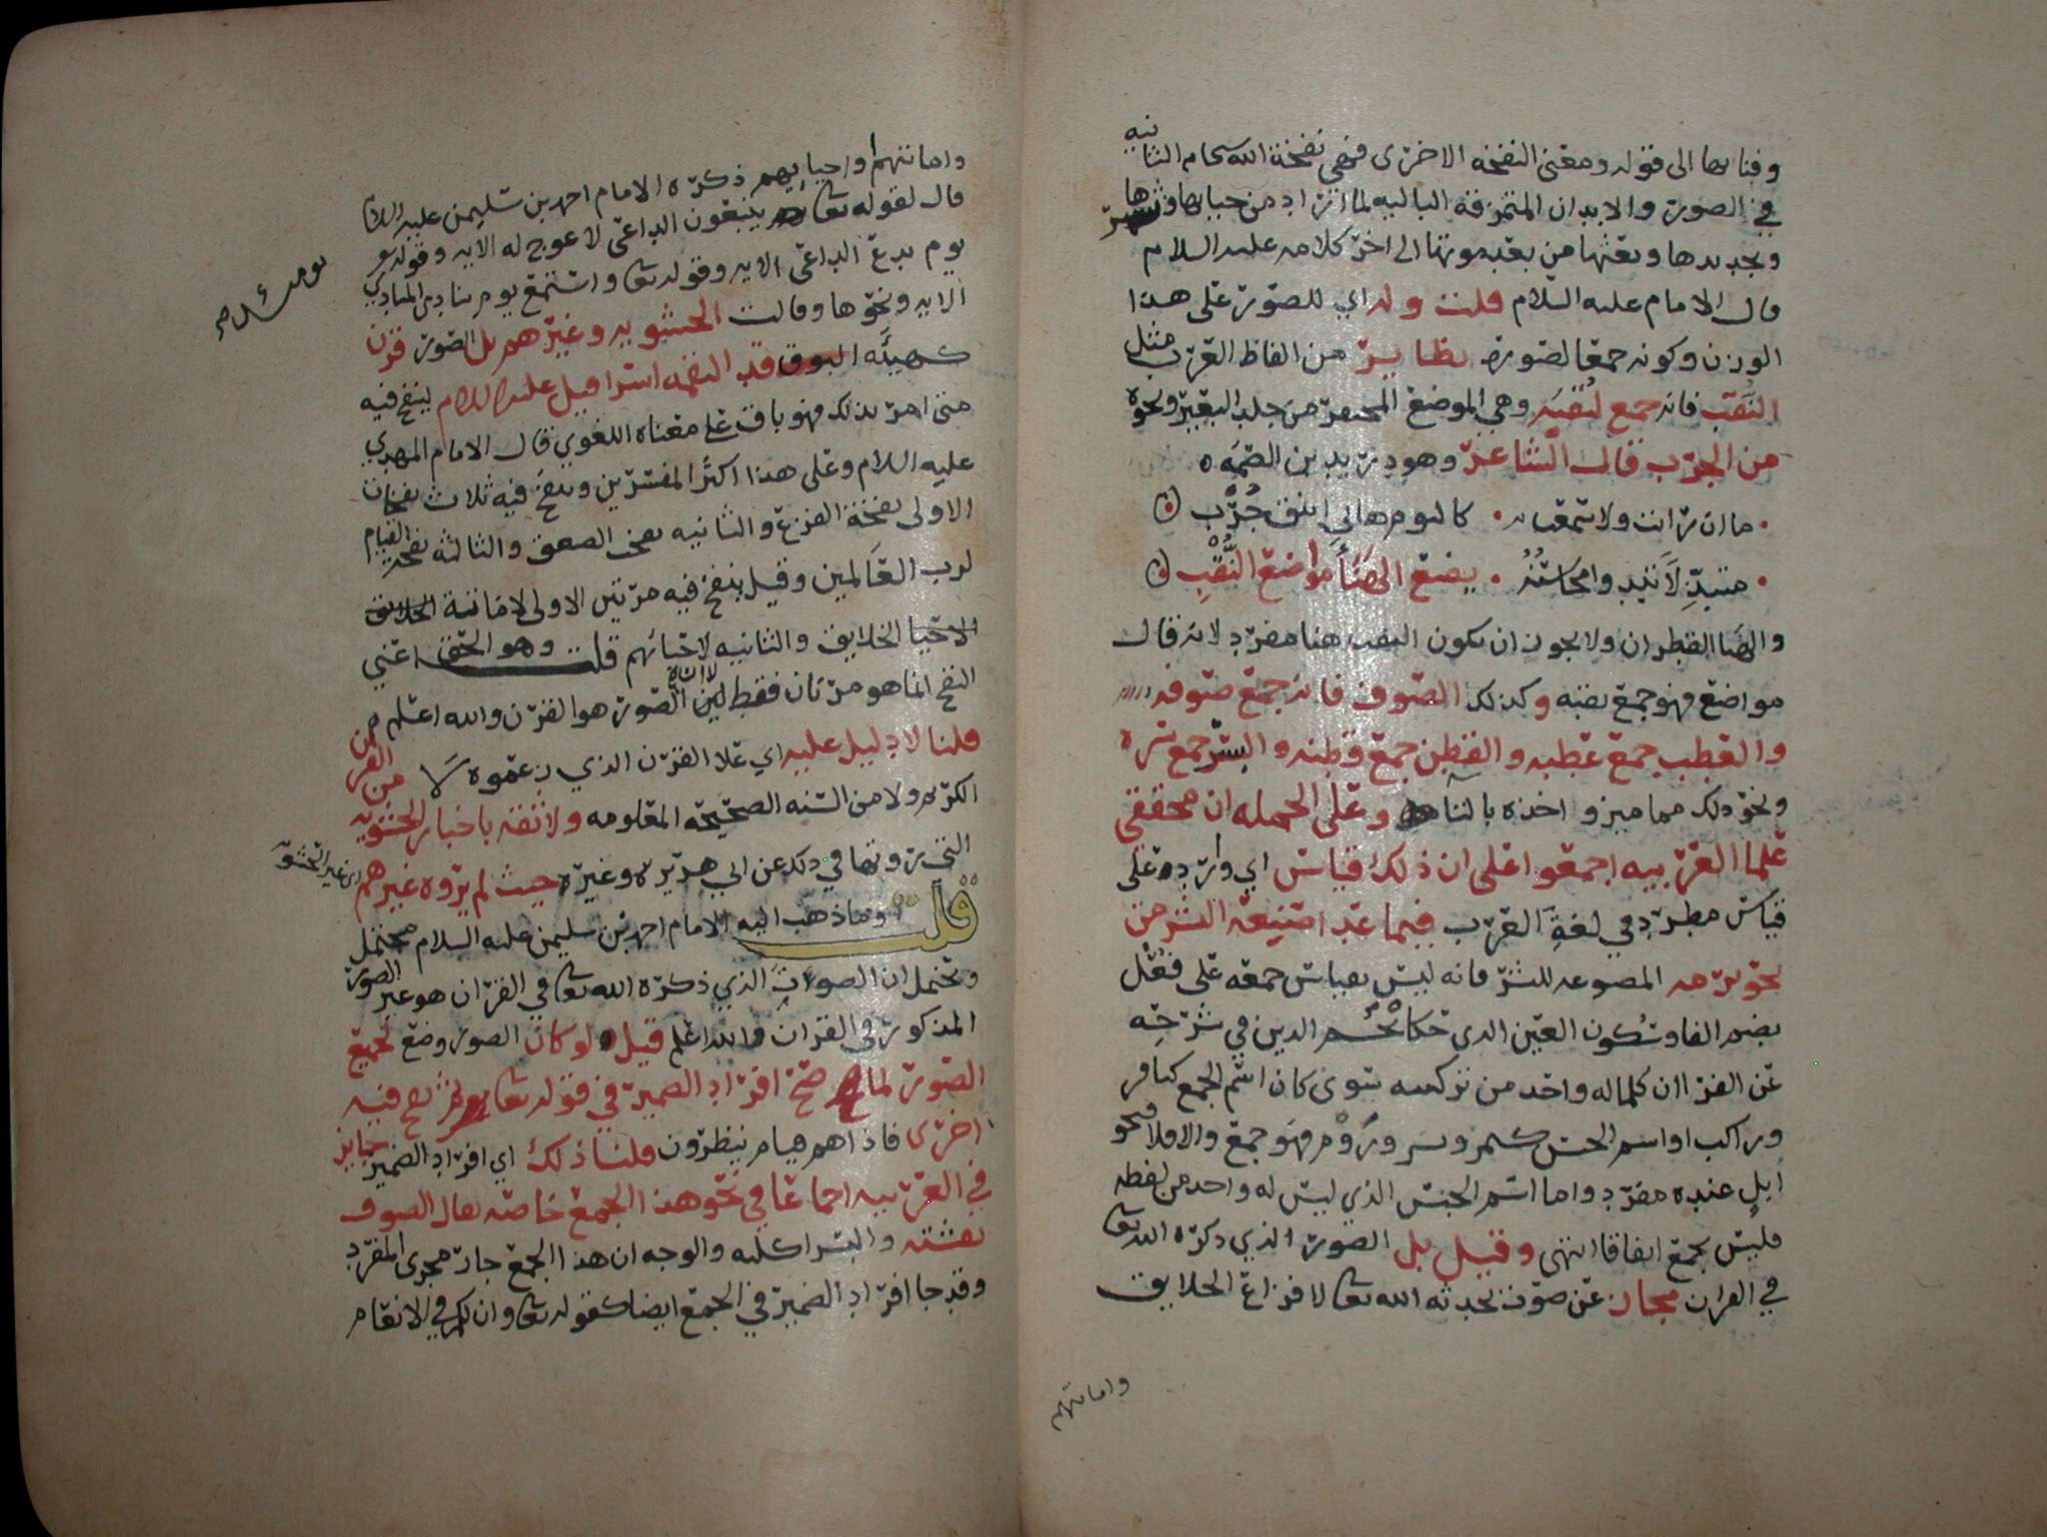 وفنايها الى قوله ومعنى النفخه الاخرى فهي نفخة الله سبحانه الثانيه
في الصور والابدان المتمزقة الباليه لما اراد من حياتها ونشرها
وتجديدها وبعثها من بعد موتها الى اخر كلامه عليه السلام
قال الامام عليه السلام قلت وله اي للصور على هذا
الوزن وكونه جمعا لصورة نظاير من الفاظ العرب مثل
النُّقْب فانه جمع لنُقبَه وهي الموضع من جلد البعير ونحوه
من الجرب قال الشاعر وهو دريد بن الصمه
ما ان رايت ولا سمعت به كاليوم هاني اينق جُرْب
متبذلا تبدوا محاسنُه يضع الهنأ مواضع النُّقْبِ
والهنا القطران ولا يجوز ان يكون النقب هنا مفرد لانه قال
مواضع فهو جمع نقبه وكذلك الصوف فانه جمع صوفه
والعطب جمع عطبه والقطن جمع قطنه والبسر جمع بسره
ونحو ذلك مما ميزوا احده بالتا وعلى الجمله ان محققي
علما العربيه اجمعوا على ان ذلك قياس اي وارد على
قياس مطرد في لغة العرب فيما عدا صنيعة البشر من
نحو برمه المصنوعه للبشر فانه ليس بقياس جمعه على فُعْل
بضم الفا وسكون العين الذي حكا نجم الدين في شرحه
عن الفرا ان كلما له واحد من تركيبه سوى كان اسم الجمع كباقر
وراكب او اسم الجنس كتمر وبسر ورُوْم فهو جمع والا فلا نحو
ابل عنده مفرد واما اسم الجنس الذي ليس له واحد من لفظه
فليس بجمع اتفاقا انتهى وقيل بل الصور الذي ذكره الله تعا
في القران مجاز عن صوت يحدثه الله تعا لافزاع الخلايق
واماتتهم
واماتتهم واحيايهم ذكره الامام احمد بن سليمن عليه السلام
قال لقوله تعا يتبعون الداعي لا عوج له الايه وقوله
يوم يدع الداعي الايه وقوله تعا واستمع يوم ينادي المنادي
يومئذ
الايه ونحوها وقالت الحشويه وغيرهم بل الصور قرن
كهيئَة البوق قد التقمه اسرافيل عليه السلام لينفخ فيه
متى امر بذلك فهو باق على معناه اللغوي قال الامام المهدي
عليه السلام وعلى هذا اكثر المفسرين وينفخ فيه ثلاث نفخات
الاولى نفخة الفزع والثانيه نفخة الصعق والثالثه نفخة القيام
لرب العالمين وقيل ينفخ فيه مرتين الاولى لاماتة الخلايق
الاحيا الخلايق والثانيه لاحيائهم قلت وهو الحق اعني
النفخ انما هو مرتان فقط لا ان الصور هو القرن والله اعلم
قلنا لا دليل عليه اي على القرن الذي زعموه لا من القران
الكريم ولا من السنه الصحيحه المعلومه ولا ثقة باخبار الحشويه
التي رووها في ذلك عن ابي هريره وغيره حيث لم يروه غيرهم
اي غير الحشويه
قلت وما ذهب اليه الامام احمد بن سليمن عليه السلام محتمل
ويحتمل ان الصور الذي ذكره الله تعا في القران هو غير الصور
المذكور في القران والله اعلم قيل لو كان الصور وضع لجمع
الصورة لما صح افراد الضمير في قوله تعا ثم نفخ فيه
اخرى فاذا هم قيام ينظرون قلنا ذلك اي افراد الضمير جايز
في العربيه اجماعا في نحو هذا الجمع خاصه يقال الصوف
نفشته والبسر اكلته والوجه ان هذا الجمع جار مجرى المفرد
وقد جا افراد الضمير في الجمع ايضا كقوله تعا وان لكم في الانعام